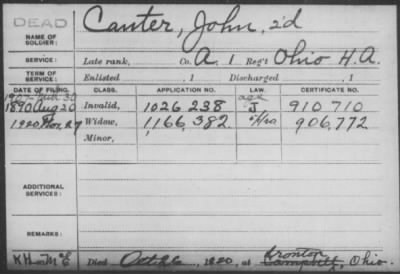 DEAD
NAME OF SOLDIER: Canter, John, 2'd
SERVICE: Late rank, Co. A, 1 Reg't Ohio H.A.
TERM OF SERVICE: Enlisted , 1 Discharged , 1
DATE OF FILING. CLASS. APPLICATION NO. LAW. CERTIFICATE NO.
1907 30 age
1890 Aug 20 Invalid, 1026,238 J 910 710
1920, Nov, 27 Widow, 1,166,382. 906,772
Minor,
ADDITIONAL SERVICES:
REMARKS:
Ironton
Died Oct 26, 1920, at Campbell, Ohio.